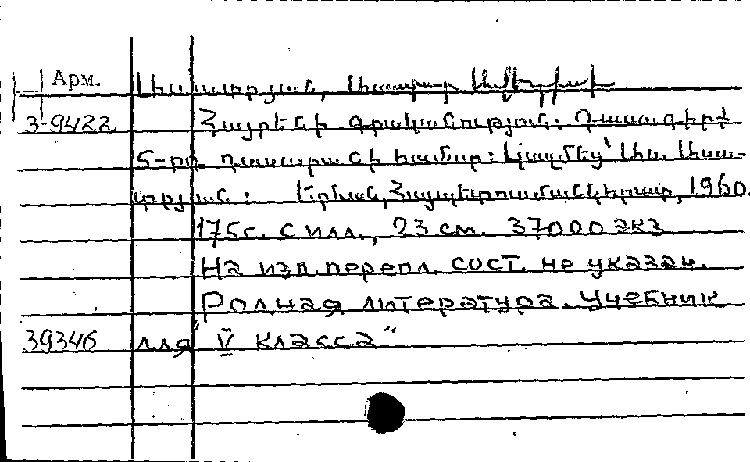 Арм.
3-9422 Հայրենի գրականություն: Դասագիրք
5-րդ դասարանի համար: Կազմեց՝
Երևան, Հայպետուսմանկհրատ, 1960.
175с. с илл., 23 см. 37000 экз
На изд. перепл. сост. не указан.
"Родная литература. Учебник
39346 для V класса"